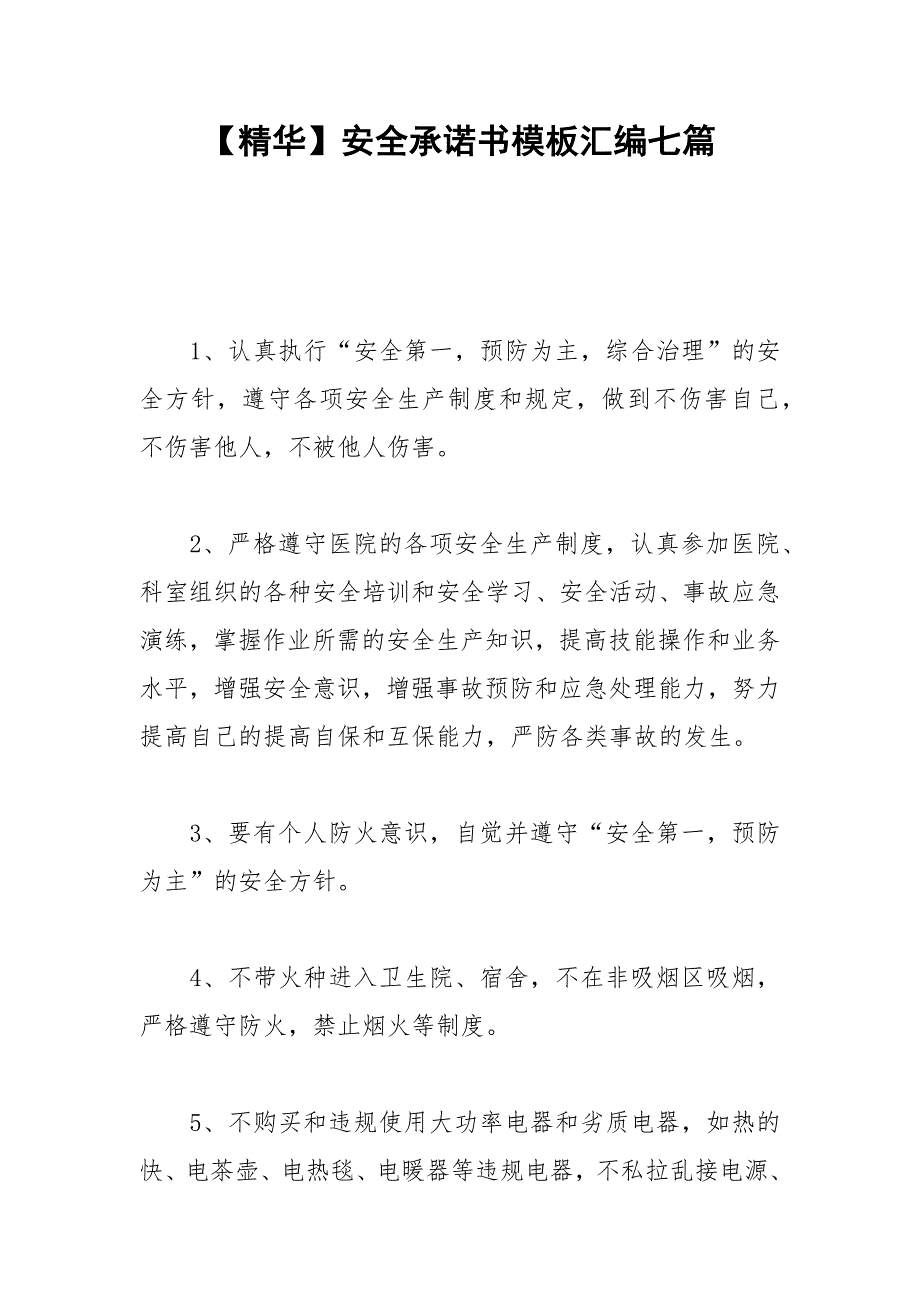 【精华】安全承诺书模板汇编七篇
1、认真执行“安全第一，预防为主，综合治理”的安
全方针，遵守各项安全生产制度和规定，做到不伤害自己，
不伤害他人，不被他人伤害。
2、严格遵守医院的各项安全生产制度，认真参加医院、
科室组织的各种安全培训和安全学习、安全活动、事故应急
演练，掌握作业所需的安全生产知识，提高技能操作和业务
水平，增强安全意识，增强事故预防和应急处理能力，努力
提高自己的提高自保和互保能力，严防各类事故的发生。
3、要有个人防火意识，自觉并遵守“安全第一，预防
为主”的安全方针。
4、不带火种进入卫生院、宿舍，不在非吸烟区吸烟，
严格遵守防火，禁止烟火等制度。
5、不购买和违规使用大功率电器和劣质电器，如热的
快、电茶壶、电热毯、电暖器等违规电器，不私拉乱接电源、